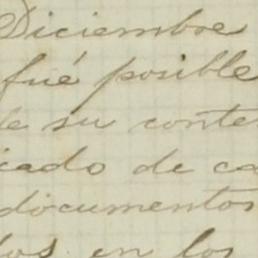 Diciembre
fué posible
de su conte
cado de ca
documentos
los en los